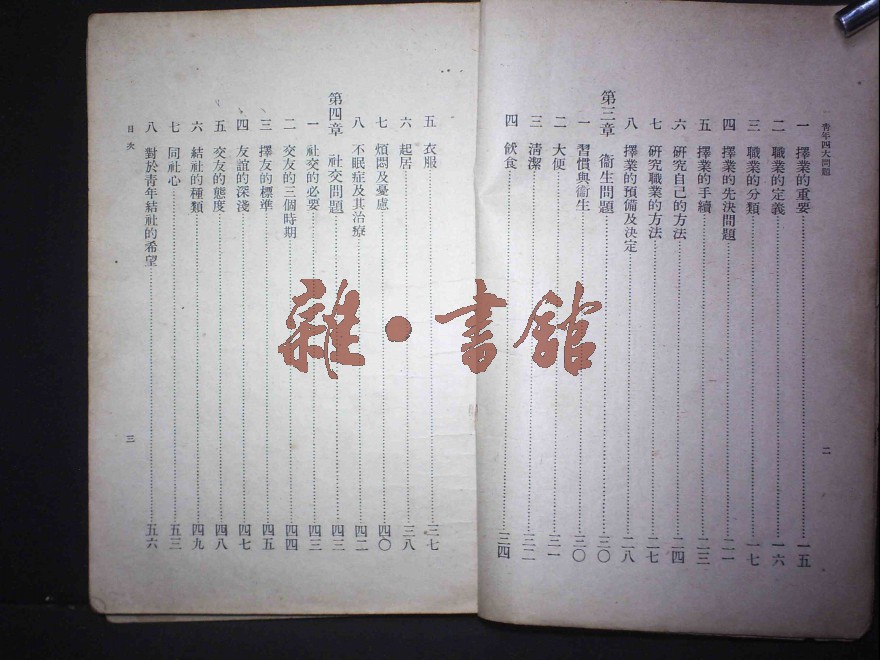 青年四大問題
一 擇業的重要……一五
二 職業的定義……一六
三 職業的分類……一七
四 擇業的先決問題……二一
五 擇業的手續……二三
六 研究自己的方法……二四
七 研究職業的方法……二七
八 擇業的預備及決定……二八
第三章 衞生問題……三〇
一 習慣與衞生……三〇
二 大便……三一
三 清潔……三二
四 飲食……三四
二
五 衣服……三七
六 起居……三八
七 煩悶及憂慮……四〇
八 不眠症及其治療……四二
第四章 社交問題……四三
一 社交的必要……四三
二 交友的三個時期……四四
三 擇友的標準……四五
四 友誼的深淺……四七
五 交友的態度……四八
六 結社的種類……四九
七 同社心……五三
八 對於青年結社的希望……五六
目次
三
雜·書館